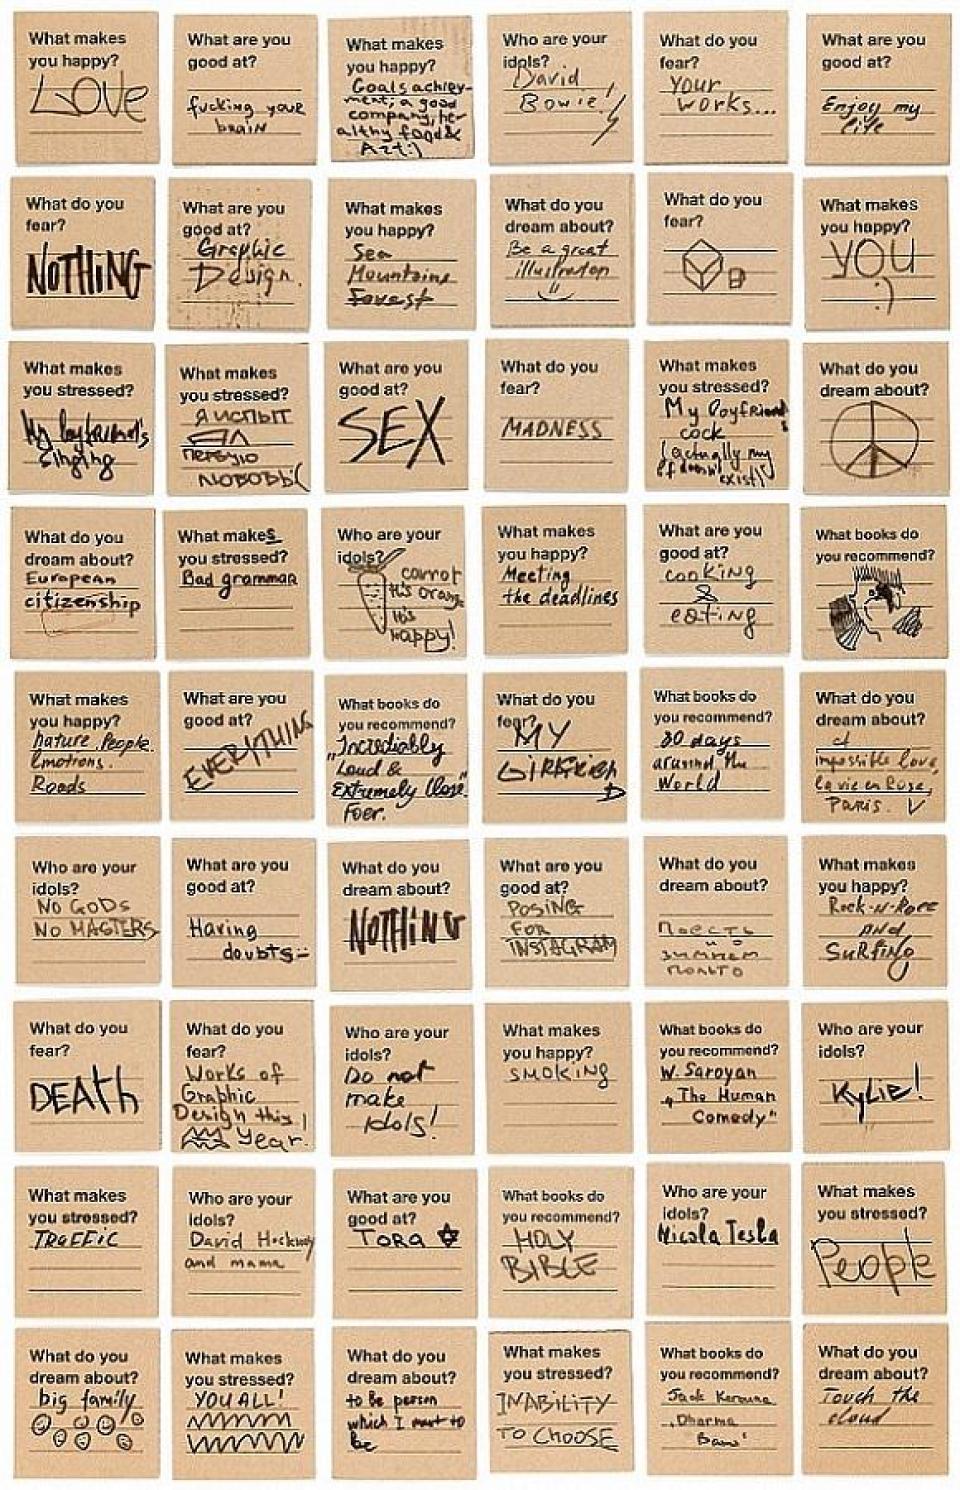 What makes
you happy?
LOVE
What are you
good at?
fucking your
brain
What makes
you happy?
Goals achiev-
ment, a good
company, he-
althy food &
Art:)
Who are your
idols?
David
Bowie!
What do you
fear?
Your
works...
What are you
good at?
Enjoy my
life
What do you
fear?
NOTHING
What are you
good at?
Graphic
Design.
What makes
you happy?
Sea
Mountains
Forest
What do you
dream about?
Be a great
illustrator
What do you
fear?
What makes
you happy?
YOU
:)
What makes
you stressed?
My boyfriend's
singing
What makes
you stressed?
Я ИСПЫТ
АЛ
первую
любовь(
What are you
good at?
SEX
What do you
fear?
MADNESS
What makes
you stressed?
My boyfriend's
cock
(actually my
bf doesn't
exist)
What do you
dream about?
What do you
dream about?
European
citizenship
What makes
you stressed?
Bad grammar
Who are your
idols?
carrot
it's orange
it's
happy!
What makes
you happy?
Meeting
the deadlines
What are you
good at?
cooking
&
eating
What books do
you recommend?
What makes
you happy?
nature, People.
Emotions.
Roads
What are you
good at?
EVERYTHING
What books do
you recommend?
"Incrediably
Loud &
Extremely Close"
Foer.
What do you
fear?
MY
What books do
you recommend?
30 days
around the
World
What do you
dream about?
impossible love,
la vie en Rose,
Paris.
Who are your
idols?
NO GODS
NO MASTERS
What are you
good at?
Having
doubts
What do you
dream about?
NOTHING
What are you
good at?
POSING
FOR
INSTAGRAM
What do you
dream about?
о
зимнем
пальто
What makes
you happy?
Rock-n-Roll
AND
SURFING
What do you
fear?
DEATH
What do you
fear?
Works of
Graphic
Design this
year.
Who are your
idols?
Do not
make
idols!
What makes
you happy?
SMOKING
What books do
you recommend?
W. Saroyan
"The Human
Comedy"
Who are your
idols?
Kylie!
What makes
you stressed?
TRAFFIC
Who are your
idols?
David Hockney
and mama
What are you
good at?
TORA
What books do
you recommend?
HOLY
BIBLE
Who are your
idols?
Nicola Tesla
What makes
you stressed?
People
What do you
dream about?
big family
What makes
you stressed?
YOU ALL!
What do you
dream about?
to be person
which I want to
be
What makes
you stressed?
INABILITY
TO CHOOSE
What books do
you recommend?
Jack
"Dharma
Bams"
What do you
dream about?
Touch the
cloud